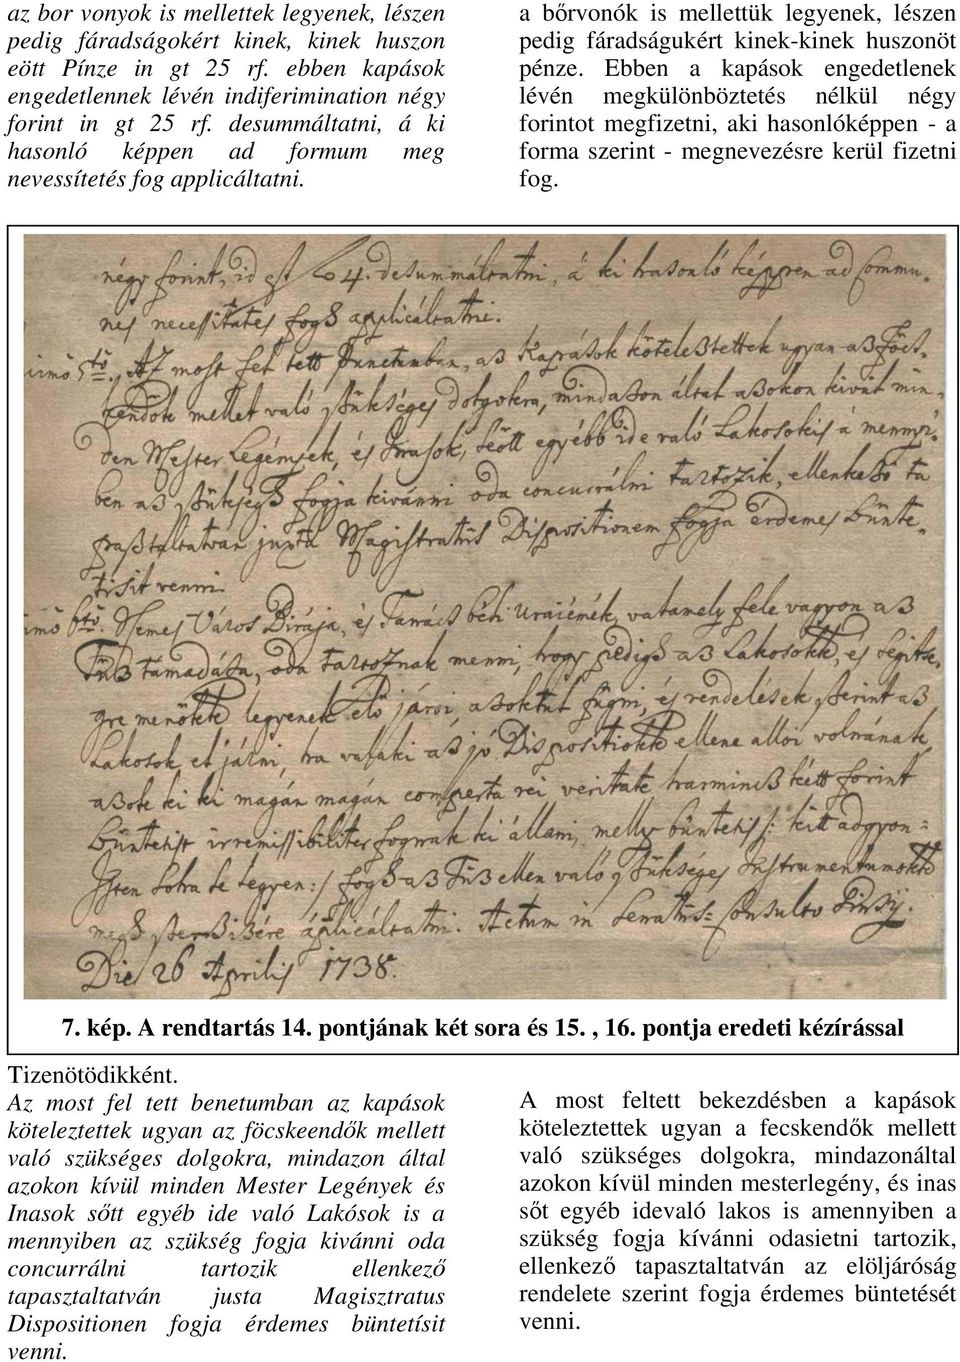 az bor vonyok is mellettek legyenek, lészen
pedig fáradságokért kinek, kinek huszon
eött Pínze in gt 25 rf. ebben kapások
engedetlennek lévén indiferimination négy
forint in gt 25 rf. desummáltatni, á ki
hasonló képpen ad formum meg
nevessítetés fog applicáltatni.
a bőrvonók is mellettük legyenek, lészen
pedig fáradságukért kinek-kinek huszonöt
pénze. Ebben a kapások engedetlenek
lévén megkülönböztetés nélkül négy
forintot megfizetni, aki hasonlóképpen - a
forma szerint - megnevezésre kerül fizetni
fog.
négy forint, id est 4. desummáltatni, á ki hasonló képpen ad commu-
nes necessitates fogh applicáltatni.
5tö. Az most fel tett Punctumban, az Kapások köteleztettek ugyan az Föcs-
kendök mellet való szükséges dolgokra, mindazon által azokon kivül min-
den Mester Legények, és Inasok, sött egyébb ide való Lakosokis á mennyi-
ben az szükségh fogja kivánni oda concurrálni tartozik, ellenkezö ta
pasztaltatván juxta Magistratus Dispositionem fogja érdemes bünte-
tisit venni.
6tö. Nemes Város Birája, és Tanács béli Uraiémék, valamely fele vagyon az
Tüz támadása, oda tartoznak menni, hogy pedigh az Lakosokk, és segitse-
gre menökk legyenek elö jároi, azoktul fügni, és rendelések szerint az
Lakosok el járni, ha valaki az jó Dispositiokk ellene alloi volnának
azok ki ki magán magán comperta rei veritate harmincz kétt forint
büntetist irremissibiliter fognak ki állani, melly büntetis /: kitt adgyon
Isten soha ne legyen :/ fogh az Tüz ellen való szükséges Instrumentumokk
megh szerzisére ápplicáltatni. Actum in Senatus Consulto
Die 26 Aprilis 1738.
7. kép. A rendtartás 14. pontjának két sora és 15. , 16. pontja eredeti kézírással
Tizenötödikként.
Az most fel tett benetumban az kapások
köteleztettek ugyan az föcskeendők mellett
való szükséges dolgokra, mindazon által
azokon kívül minden Mester Legények és
Inasok sőtt egyéb ide való Lakósok is a
mennyiben az szükség fogja kivánni oda
concurrálni tartozik ellenkező
tapasztaltatván justa Magisztratus
Dispositionen fogja érdemes büntetísit
venni.
A most feltett bekezdésben a kapások
köteleztettek ugyan a fecskendők mellett
való szükséges dolgokra, mindazonáltal
azokon kívül minden mesterlegény, és inas
sőt egyéb idevaló lakos is amennyiben a
szükség fogja kívánni odasietni tartozik,
ellenkező tapasztaltatván az elöljáróság
rendelete szerint fogja érdemes büntetését
venni.